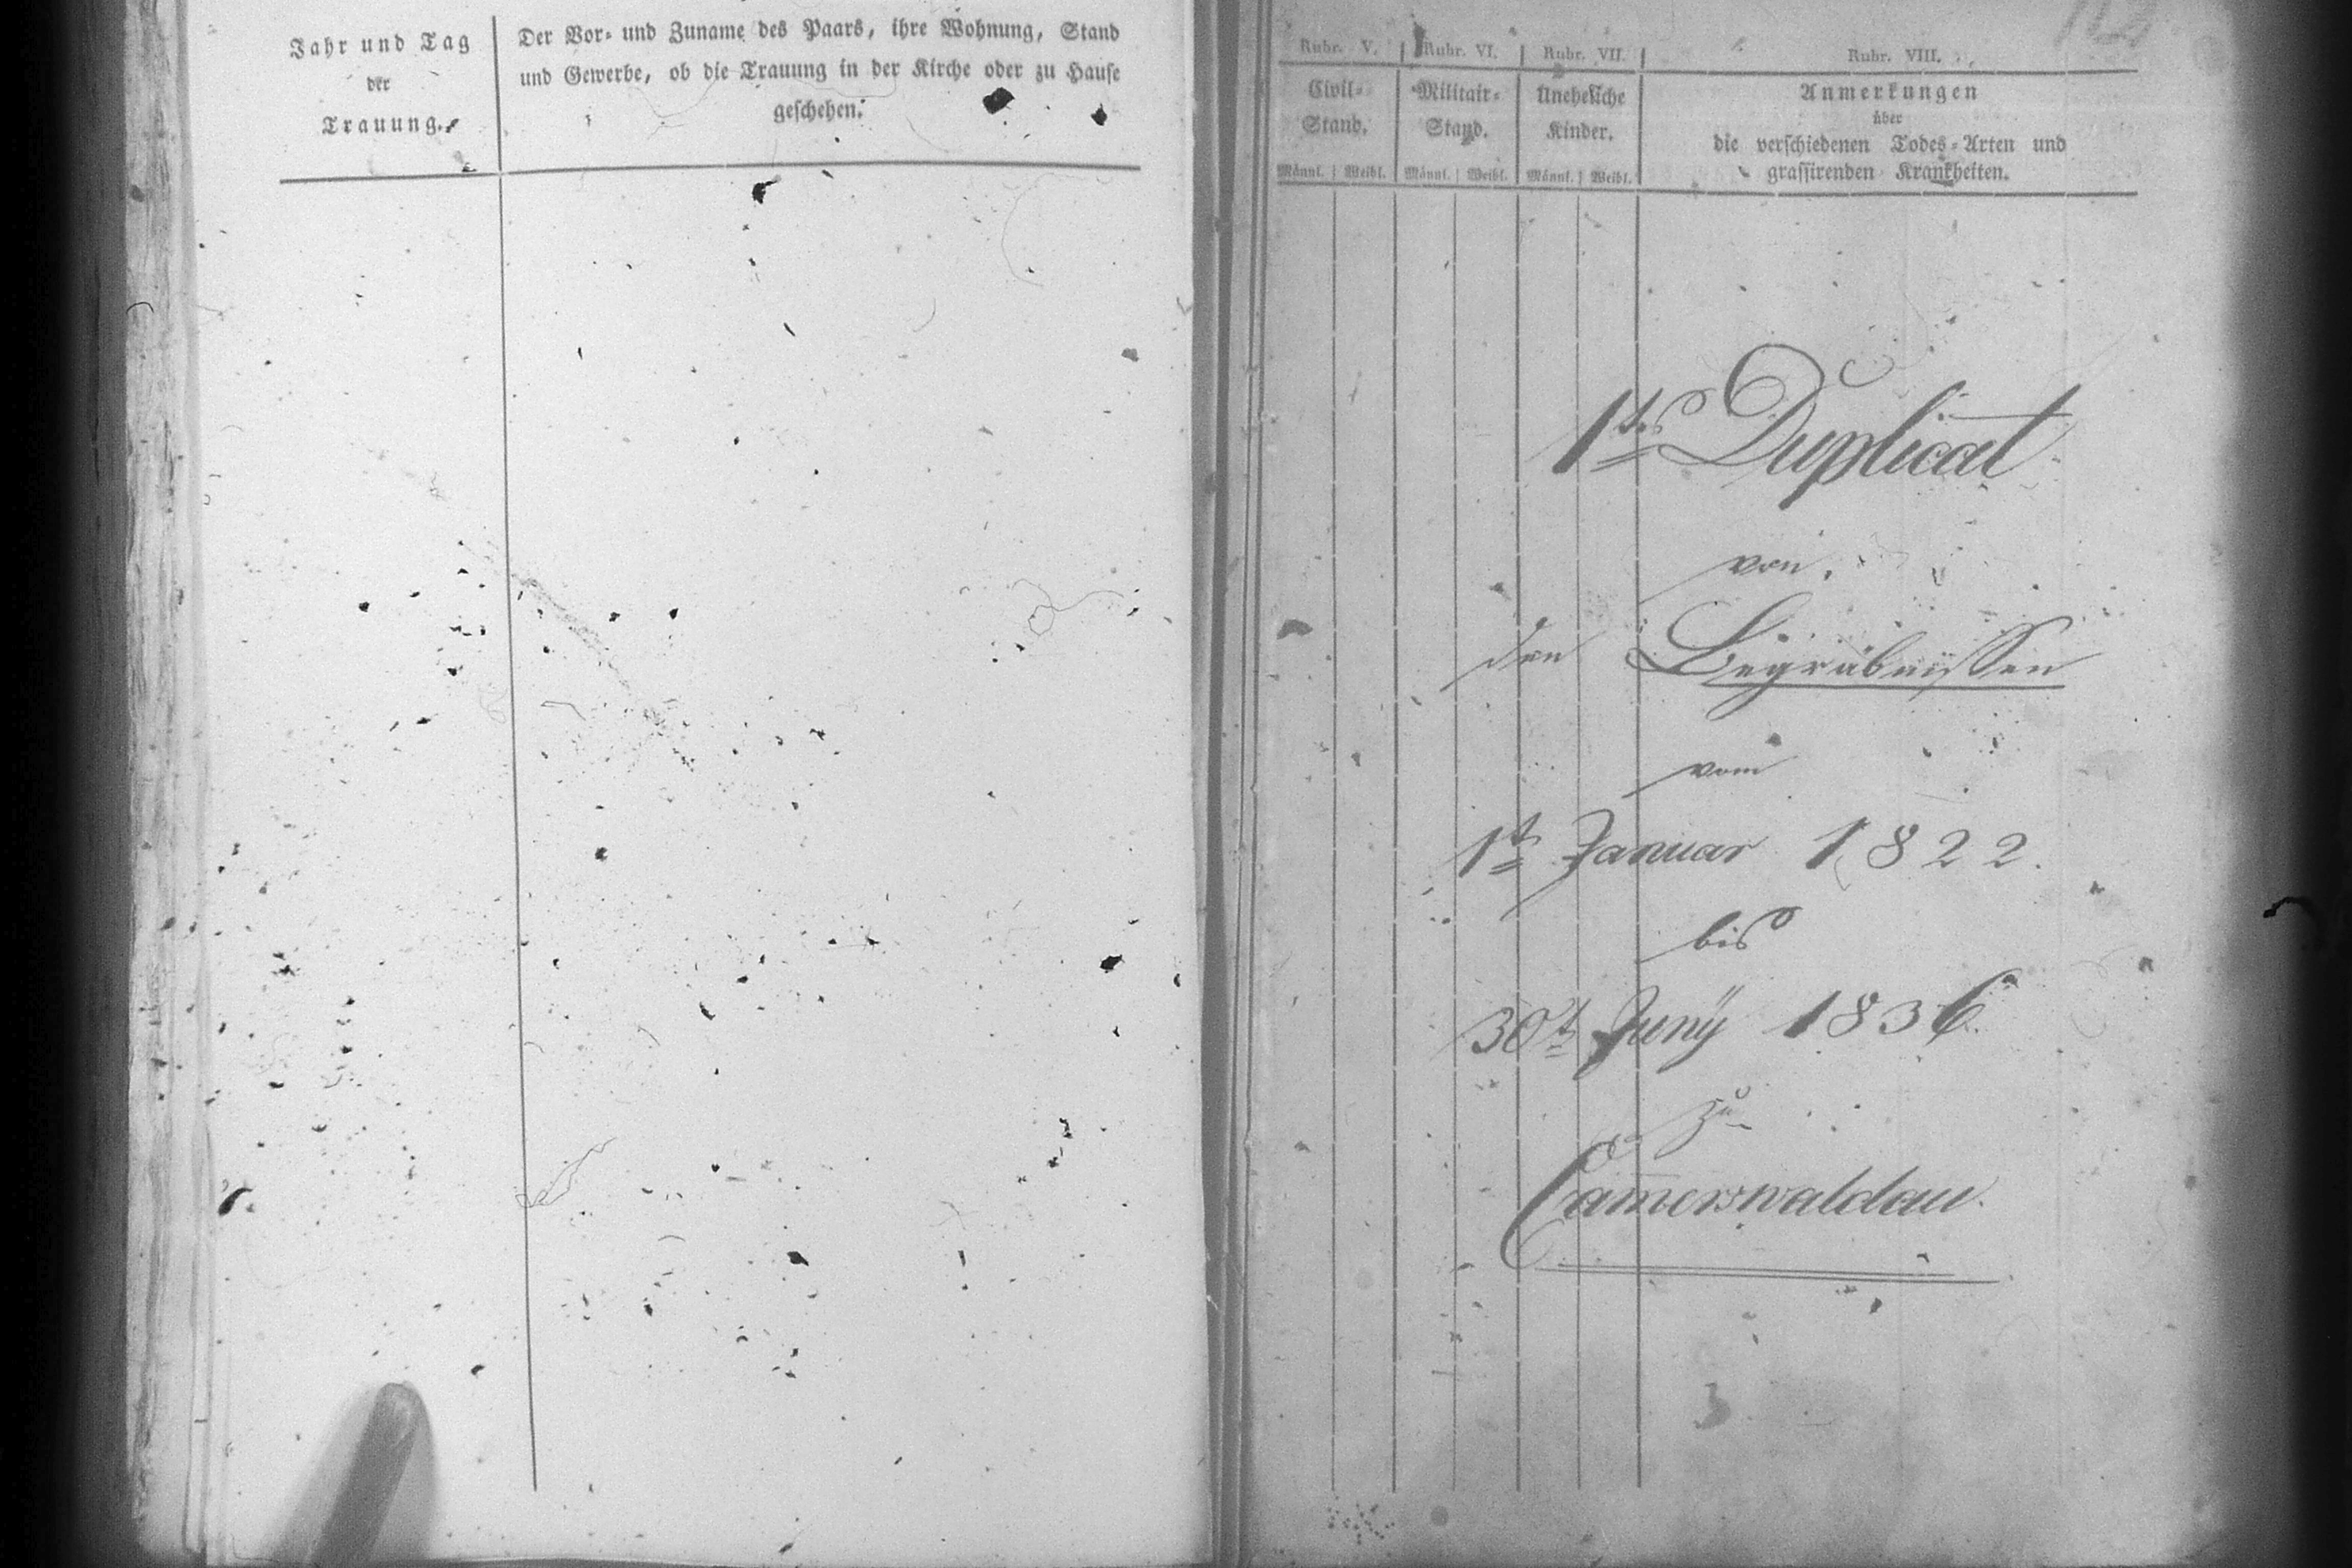 Jahr und Tag
der
Trauung.
Der Vor- und Zuname des Paars, ihre Wohnung, Stand
und Gewerbe, ob die Trauung in der Kirche oder zu Hause
geschehen.
Rubr. V. Rubr. VI. Rubr. VII. Rubr. VIII.
Civil-
Stand.
Militair-
Stand.
Uneheliche
Kinder.
Anmerkungen
über
die verschiedenen Todes-Arten und
grassirenden Krankheiten.
Männl. Weibl. Männl. Weibl. Männl. Weibl.
1tes Duplicat
von
den Begräbnissen
vom
1t Januar 1822.
bis
30t Juny 1836.
zu
Cam̄erswaldau.